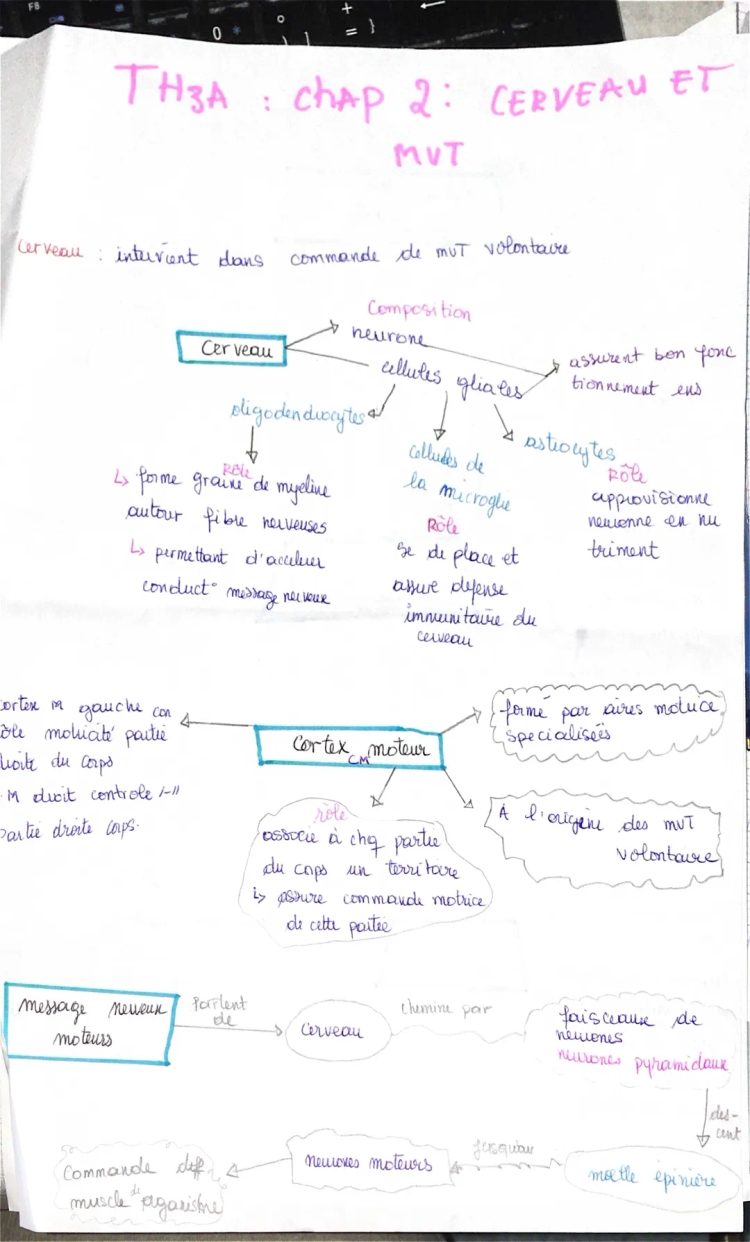 TH3A : CHAP 2 : CERVEAU ET
MVT
Cerveau : intervient dans commande de mvT volontaire
Composition
Cerveau
neurone
cellules gliales
assurent bon fonc
tionnement ens
oligodendrocytes
Rôle
↳ forme graine de myeline
autour fibre nerveuses
↳ permettant d'accélérer
conduct° message nerveux
cellules de
la microglie
Rôle
se de place et
assure défense
immunitaire du
cerveau
astrocytes
Rôle
approvisionne
neuronne en nu
triment
cortex M gauche con
rôle motricité partie
droite du corps
M droit controle /-//
partie droite corps.
Cortex moteur
CM
formé par aires motrice
specialisées
rôle
associe à chq partie
du corps un territoire
↳ assure commande motrice
de cette partie
A l'origine des mvT
volontaire
message nerveux
moteurs
Partent
de
Cerveau
chemine par
faisceaux de
neurones
neurones pyramidaux
des-
cent
moelle épinière
jusqu'au
neurones moteurs
Commande diff
muscle de l'organisme